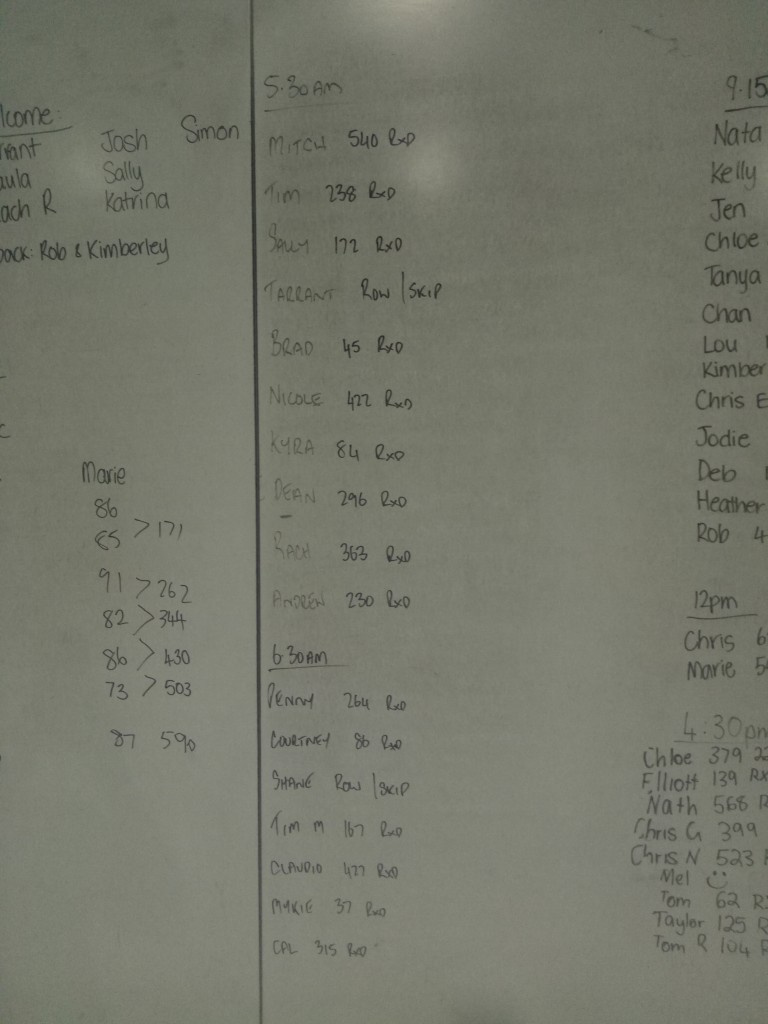 lcome:
Josh Simon
Sally
ach R Katrina
back: Rob & Kimberley
Marie
86
85 > 171
91 > 262
82 > 344
86 > 430
73 > 503
87 590
5.30AM
MITCH 540 RxD
TIM 238 RxD
SALLY 172 RxD
TARRANT ROW / SKIP
BRAD 45 RxD
NICOLE 422 RxD
KYRA 84 RxD
DEAN 296 RxD
RACH 363 RxD
ANDREW 230 RxD
6.30AM
PENNY 264 RxD
COURTNEY 86 RxD
SHANE ROW / SKIP
TIM M 167 RxD
CLAUDIO 477 RxD
MYKIE 37 RxD
CAL 315 RxD
9.15
Nata
Kelly
Jen
Chloe
Tanya
Chan
Lou
Kimber
Chris E
Jodie
Deb
Heather
Rob 4
12pm
Chris 6
Marie 5
4:30pm
Chloe 379 22
Elliott 139 RX
Nath 568 R
Chris G 399
Chris N 523 R
Mel
Tom 62 RX
Taylor 125 R
Tom R 104 R